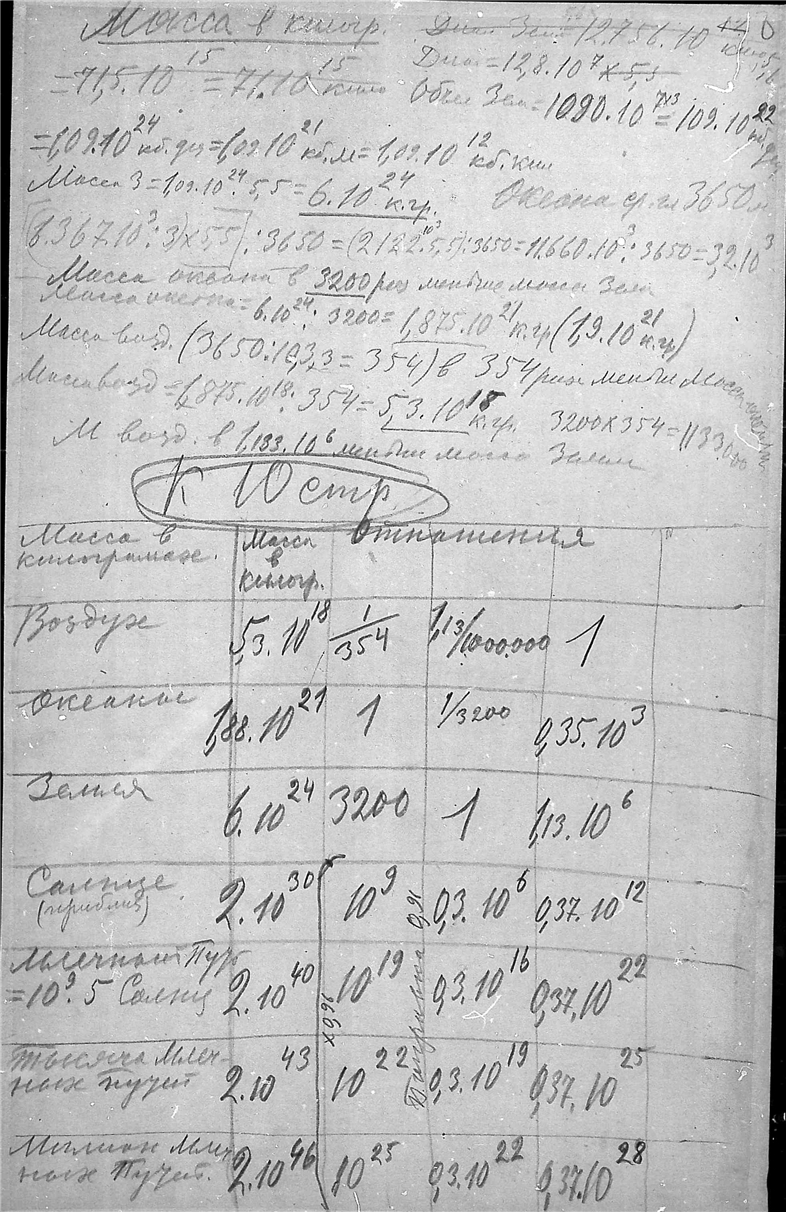 Масса в килогр.
Диам Зем = 12.756.10
= 71,5.10¹⁵ = 71.10¹⁵ кило
Диам = 12,8.10⁷ × 5,5
Объем Зем = 1090.10 = 109.10²²
= 1,09.10²⁴ кб.дц = 1,09.10²¹ кб.м = 1,09.10¹² кб.км
Масса З = 1,09.10²⁴. 5,5 = 6.10²⁴ к.гр. Океана ср. гл 3650 м
[(6.367.10³:3)×5,5]:3650 = (2122.5,5):3650 = 11.660.10³:3650 = 3,2.10³
Масса океана в 3200 раз меньше массы Земли
Масса океана = 6.10²⁴: 3200 = 1,875.10²¹ к.гр (1,9.10²¹ к.гр)
Масса возд. (3650:10,3,3 = 354) в 354 раза меньше Массы
Масса возд = 1,875.10¹⁸: 354 = 5,3.10¹⁸ к.гр. 3200×354 = 1133000
М возд. в 1,133.10⁶ меньше массы Земли
К 10 стр
Масса в килограмах. Масса в килогр. Отношения
Воздух 5,3.10¹⁸ 1/354 1,13/1000.000 1
Океаны 1,88.10²¹ 1 1/3200 0,35.10³
Земля 6.10²⁴ 3200 1 1,13.10⁶
Солнце (приблиз) 2.10³⁰ 10⁹ 0,3.10⁶ 0,37.10¹²
Млечный Путь = 10⁹. 5 Солнц 2.10⁴⁰ 10¹⁹ 0,3.10¹⁶ 0,37.10²²
Тысяча Млечных путей 2.10⁴³ 10²² 0,3.10¹⁹ 0,37.10²⁵
Милион Млечных Путей. 2.10⁴⁶ 10²⁵ 0,3.10²² 0,37.10²⁸
×0,96
Поправка 0,91